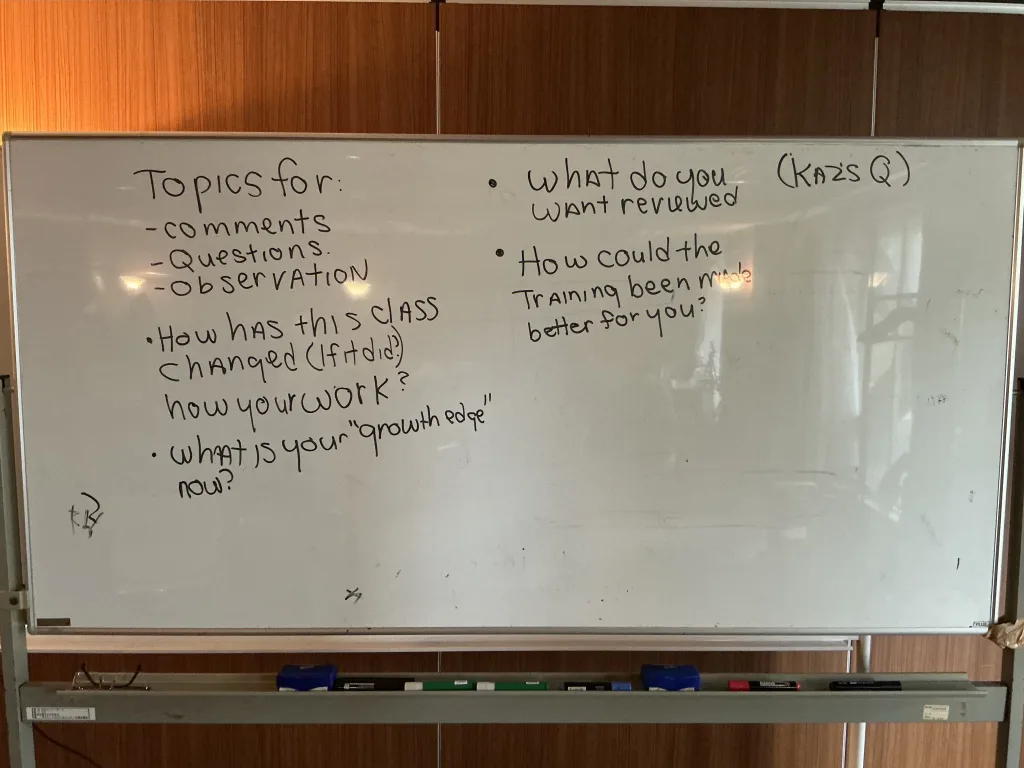 Topics for:
- comments
- Questions.
- observation
• How has this class
changed (If it did?)
how your work?
• what is your "growth edge"
now?
• what do you (KAZ'S Q)
want reviewed
• How could the
Training been made
better for you?